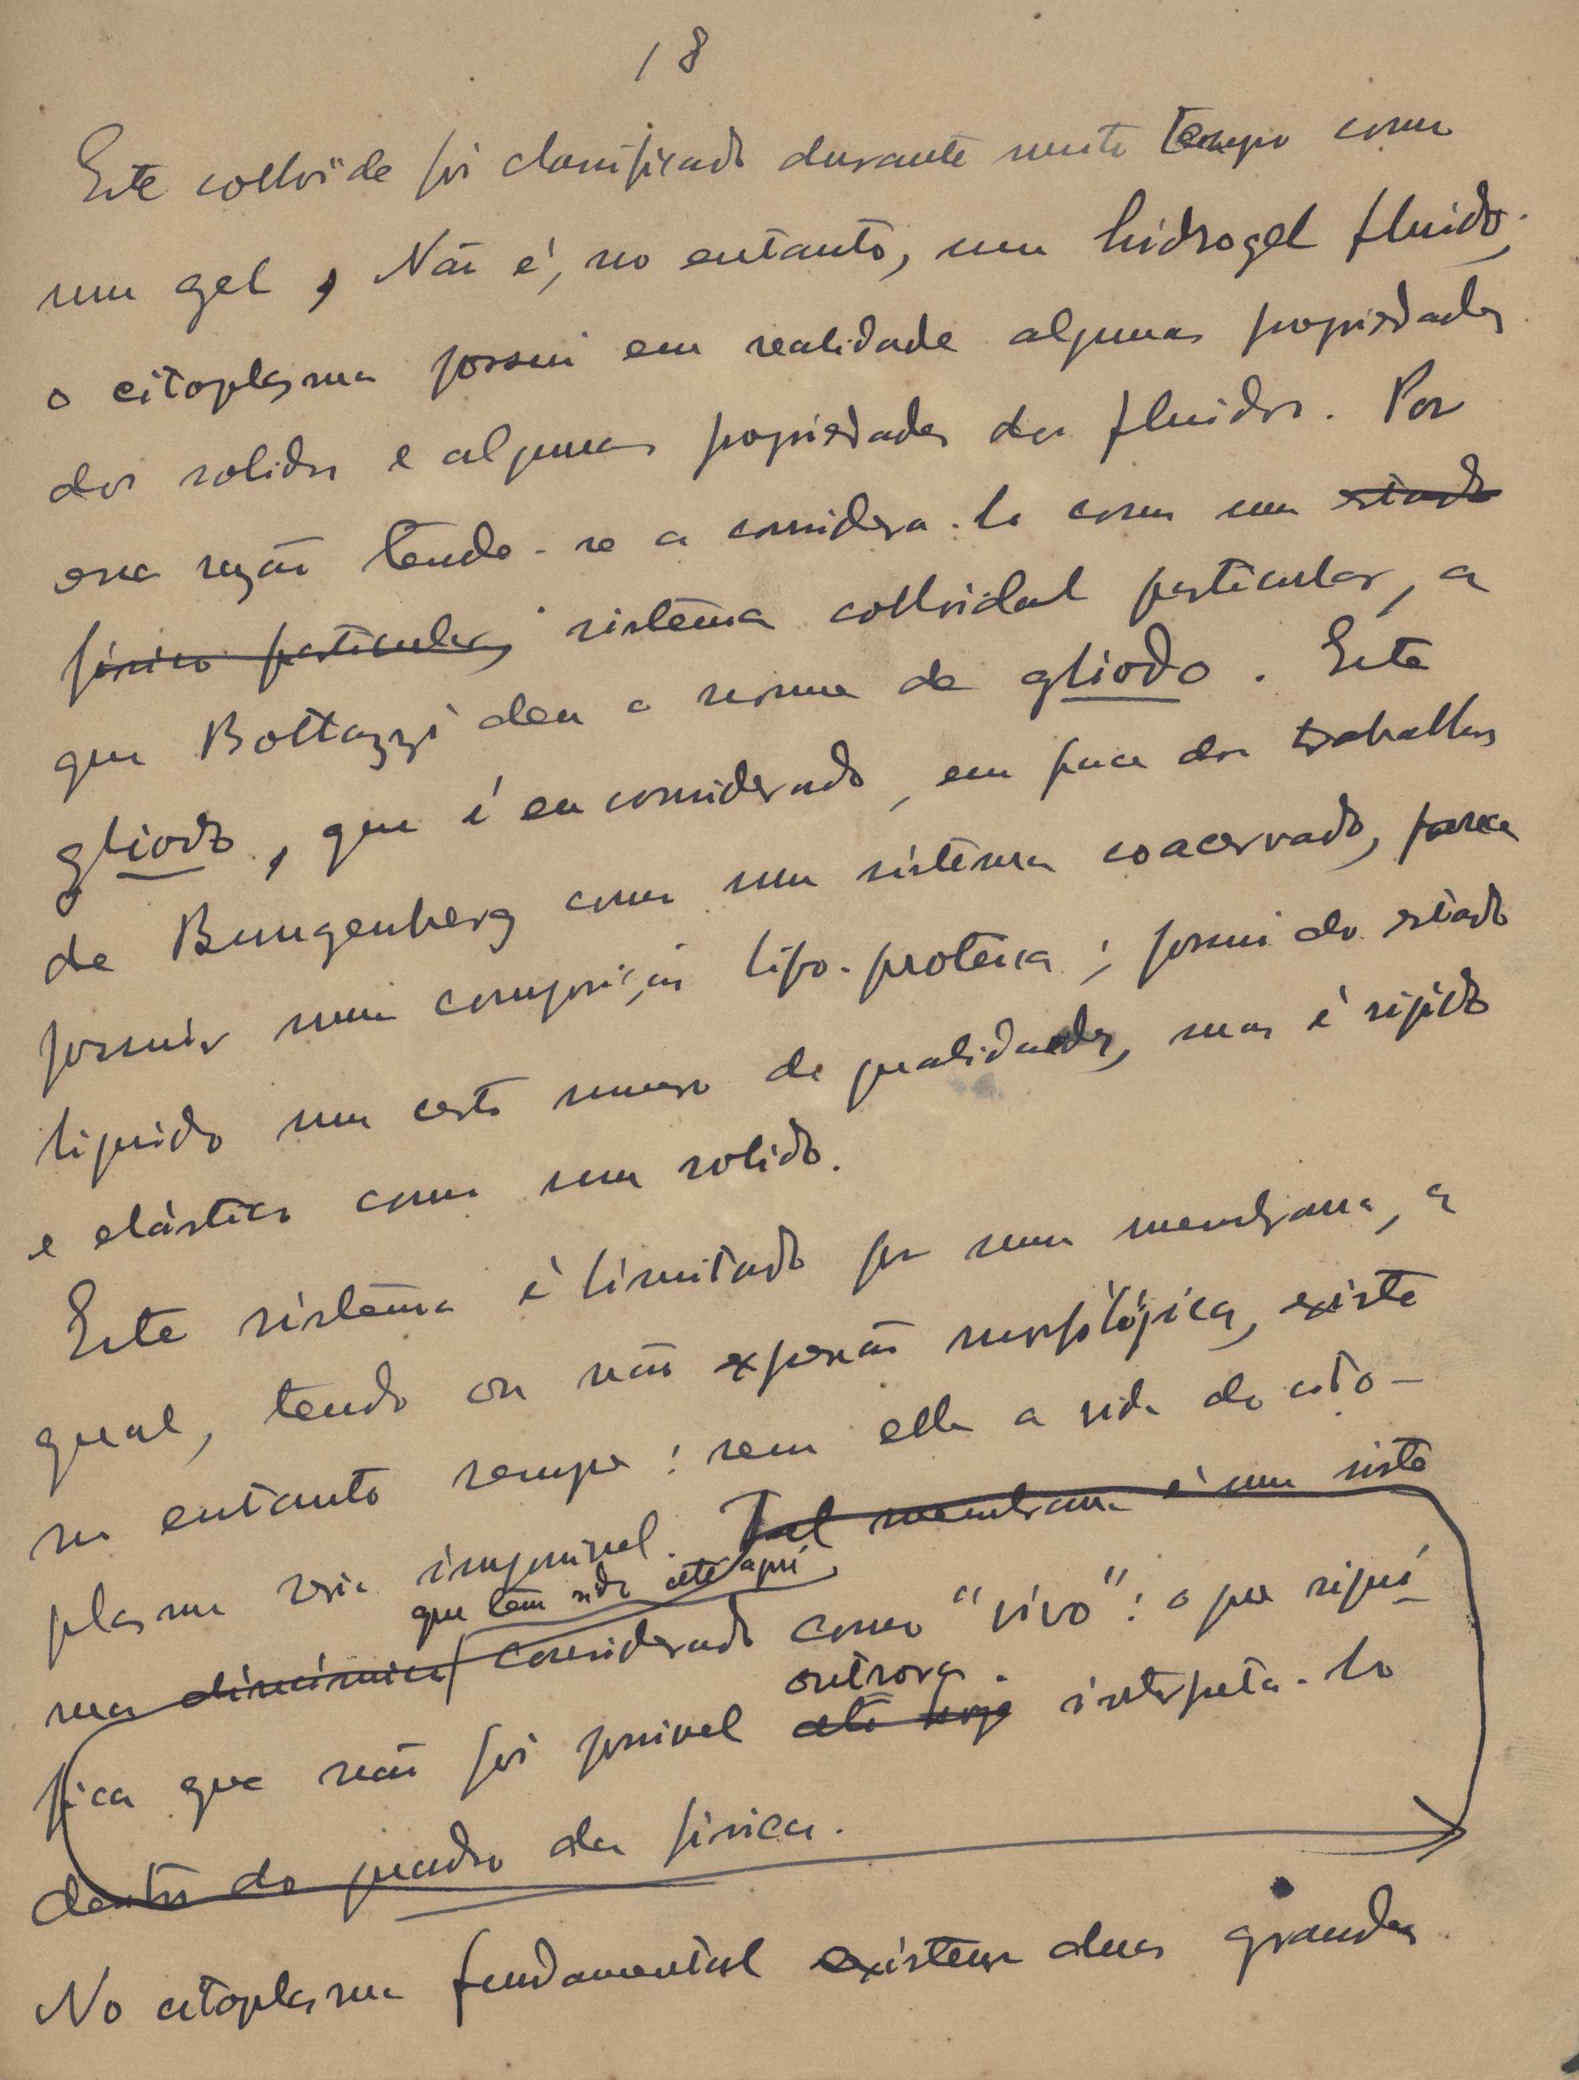 18
Este colloide foi classificado durante muito tempo como
um gel, Não é, no entanto, um hidrogel fluido;
o citoplasma possui em realidade algumas propriedades
dos solidos e algumas propriedades dos fluidos. Por
essa razão tende-se a considera-lo como um estado
físico particular, sistema colloidal particular, a
que Bottazzi deu o nome de gliodo. Este
gliodo, que é considerado, em face dos trabalhos
de Bungenberg como um sistema coacervado, parece
possuir uma composição lipo-proteica; possui do estado
liquido um certo numero de qualidades, mas é rigido
e elástico como um solido.
Este sistema é limitado por uma membrana, a
qual, tendo ou não expressão morfológica, existe
no entanto sempre: sem ella a vida do cito-
plasma seria impossivel. Tal membrana é um siste
que tem sido até aqui
ma dinâmico considerado como "vivo": o que signi-
outrora
fica que não foi possivel até hoje interpreta-lo
dentro do quadro da física.
No citoplasma fundamental existem duas grandes